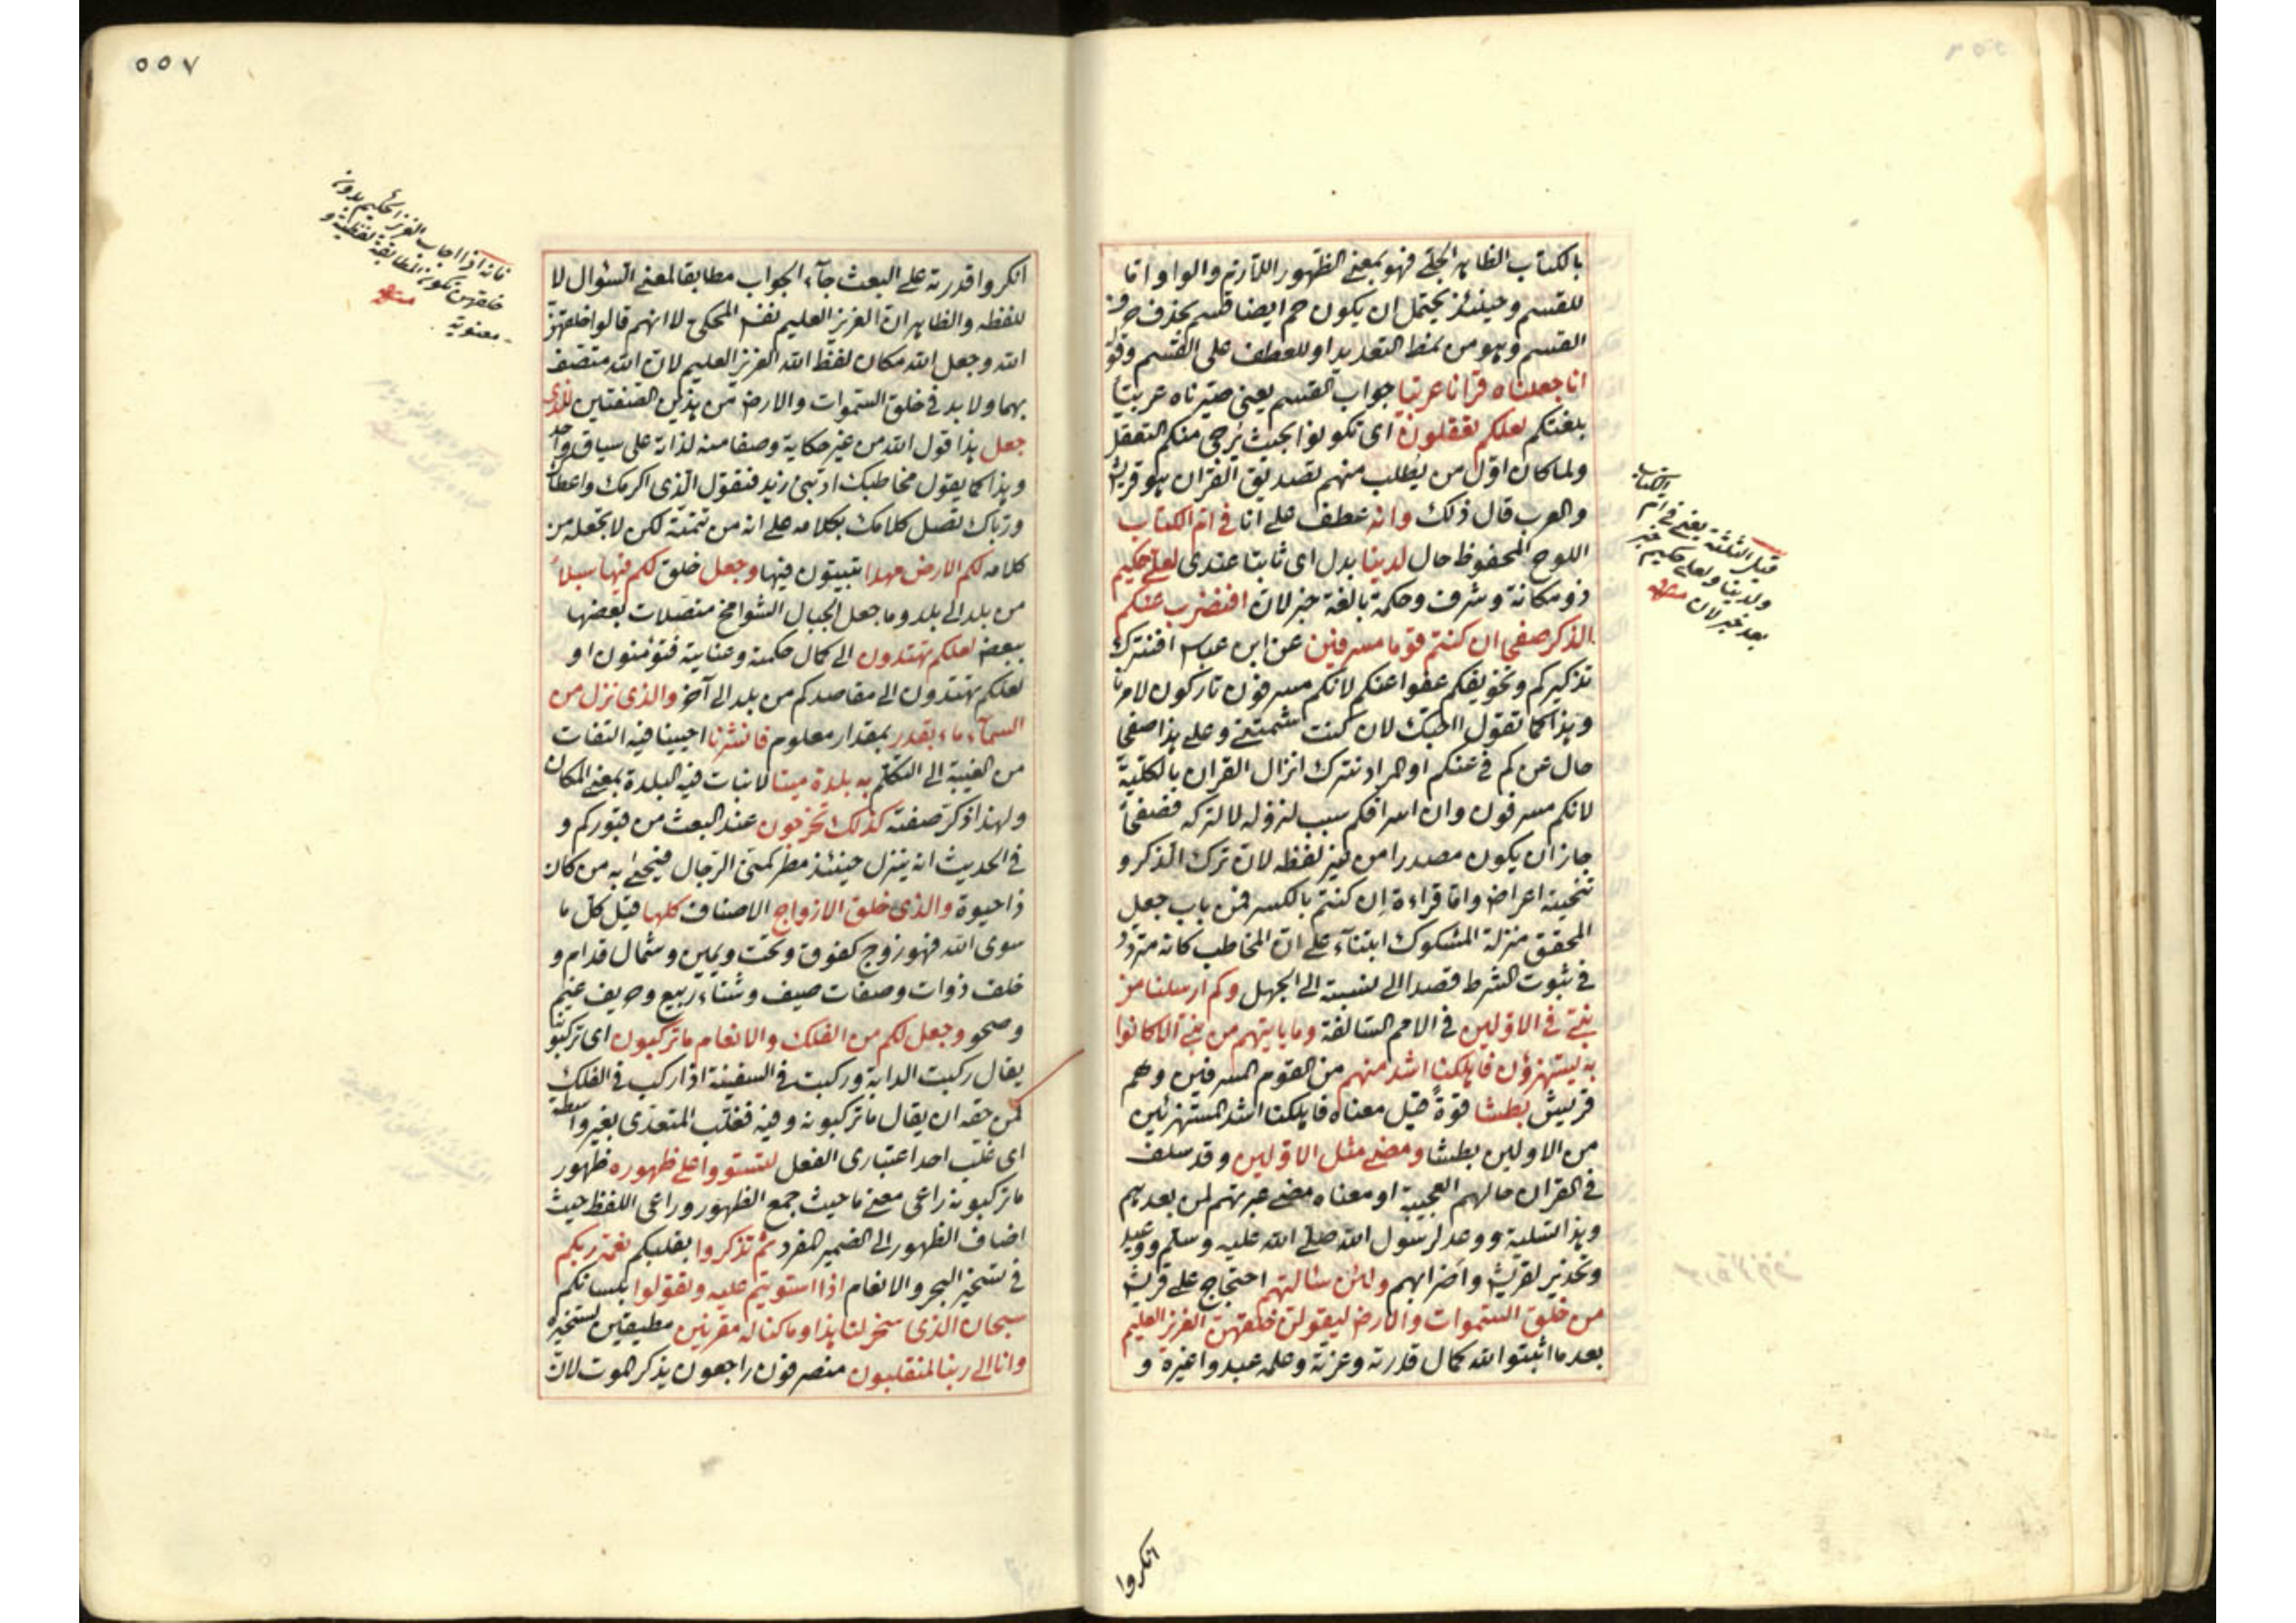 بالكتاب الظاهر الجلي فهو بمعنى الظهور اللازم والواو اما
للقسم وحينئذ يحتمل ان يكون حم ايضا قسم بحذف حرف
القسم وهو من نمط التعديد او للعطف على القسم وقوله
انا جعلناه قرانا عربيا جواب القسم يعني صيرناه عربيا
بلغتكم لعلكم تعقلون اى تكونوا بحيث يرجى منكم التعقل
ولما كان اول من يُطلب منهم تصديق القران هو قريش
والعرب قال ذلك وانه عطف على انا فى ام الكتاب
اللوح المحفوظ حال لدينا بدل اى ثابتا عندى لعلى حكيم
ذو مكانة وشرف وحكمة بالغة خبر لان افنضرب عنكم
الذكر صفحا ان كنتم قوما مسرفين عن ابن عباس افنترك
تذكيركم وتخويفكم عفوا عنكم لانكم مسرفون تاركون لامرنا
وهذا كما تقول ااحبك لان كنت شتمتنى وعلى هذا صفحا
حال عن كم فى عنكم او المراد نترك انزال القران بالكلية
لانكم مسرفون وان اسرافكم سبب لنزوله لا لتركه فصفحاً
جاز ان يكون مصدرا من غير لفظه لان ترك الذكر و
تنحيته اعراض واما قراءة اِن كنتم بالكسر فمن باب جعل
المحقق منزلة المشكوك ابتنآء على ان المخاطب كانه متردد
فى ثبوت الشرط قصدا الى نسبته الى الجهل وكم ارسلنا من
نبى فى الاولين فى الامم السالفة وما ياتيهم من نبى الا كانوا
به يستهزؤن فاهلكنا اشد منهم من القوم المسرفين وهم
قريش بطشا قوةً قيل معناه فاهلكنا اشد المستهزئين
من الاولين بطشا ومضى مثل الاولين وقد سلف
فى القران حالهم العجيبة او معناه مضى عبرتهم لمن بعدهم
وهذا تسلية ووعد لرسول الله صلى الله عليه وسلم ووعيد
وتحذير لقريش واضرابهم ولئن سئالتهم احتجاج على قريش
من خلق السموات والارض ليقولن خلقهن العزيز العليم
بعد ما اثبتوا الله كمال قدرته وعزته وعلمه عبدوا غيره و
قيل الثلثة يعنى فى ام الكتاب
ولدينا ولعلى حكيم خبر
بعد خبر لان
انكروا
٥٥٧
انكروا قدرته على البعث جآء الجواب مطابقا لمعنى السؤال لا
للفظه والظاهر ان العزيز العليم نفس المحكى لا انهم قالوا خلقهن
الله وجعل الله مكان لفظ الله العزيز العليم لان الله متصف
بهما ولا بد فى خلق السموات والارض من هذين الصفتين الذى
جعل هذا قول الله من غير حكاية وصفا منه لذاته على سياق واحد
وهذا كما يقول مخاطبك ادبنى زيد فتقول الذى اكرمك واعطاك
ورباك تصل كلامك بكلامه على انه من تتمته لكن لا تجعله من
كلامه لكم الارض مهدا تبيتون فيها وجعل خلق لكم فيها سبلاً
من بلد الى بلد وما جعل الجبال الشوامخ متصلات بعضها
ببعض لعلكم تهتدون الى كمال حكمته وعنايته فتؤمنون او
لعلكم تهتدون الى مقاصدكم من بلد الى آخر والذى نزل من
السمآء ماء بقدر بمقدار معلوم فانشرنا احيينا فيه التفات
من الغيبة الى التكلم به بلدة ميتا لا نبات فيه البلدة بمعنى المكان
ولهذا ذكر صفته كذلك تخرجون عند البعث من قبوركم و
فى الحديث انه ينزل حينئذ مطر كمنى الرجال فيحيى به من كان
ذا حيوة والذى خلق الازواج الاصناف كلها قيل كل ما
سوى الله فهو زوج كفوق وتحت ويمين وشمال قدام و
خلف ذوات وصفات صيف وشتاء ربيع وخريف غيم
وصحو وجعل لكم من الفلك والانعام ما تركبون اى تركبونه
يقال ركبت الدابة وركبت فى السفينة اذا ركب فى الفلك
فمن حقه ان يقال ما تركبونه وفيه فغلب المتعدى بغير واسطة
اى غلب احد اعتبارى الفعل لتستووا على ظهوره ظهور
ما تركبونه راعى معنى ما حيث جمع الظهور وراعى اللفظ حيث
اضاف الظهور الى الضمير المفرد ثم تذكروا بقلبكم نعمة ربكم
فى تسخير البحر والانعام اذا استويتم عليه وتقولوا بلسانكم
سبحان الذى سخر لنا هذا وما كنا له مقرنين مطيقين تسخيره
وانا الى ربنا لمنقلبون منصرفون راجعون يذكر الموت لان
فانه اذا اجاب العزيز الحكيم بدون
خلقهن تكون المطابقة لفظية و
معنوية